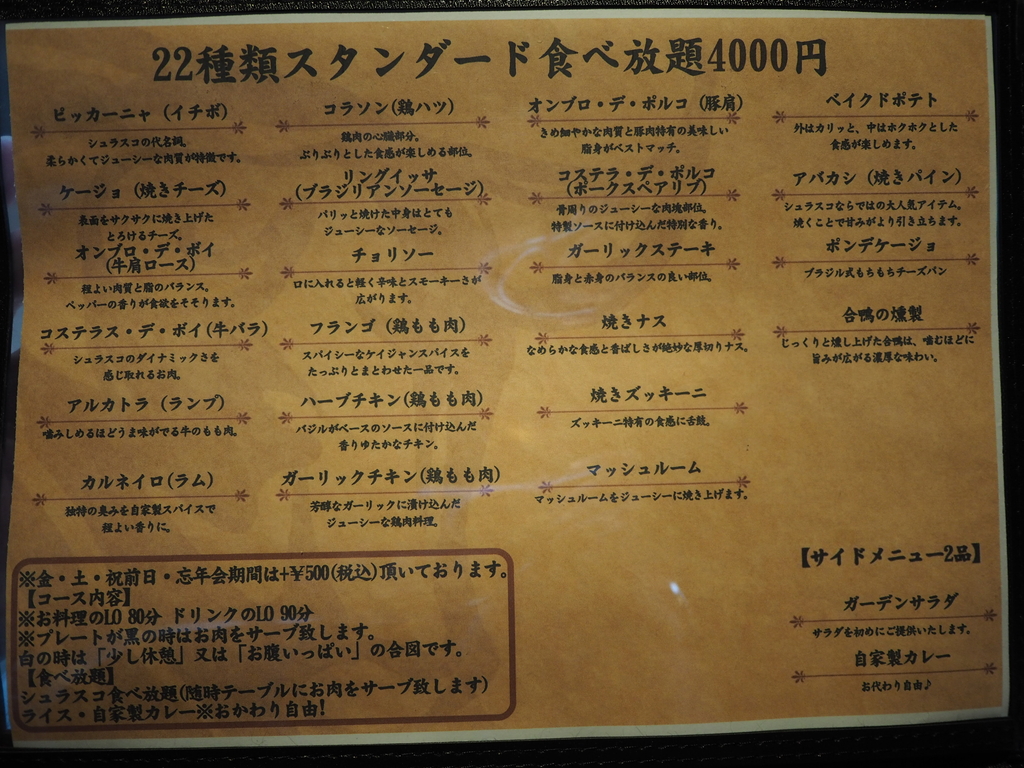 22種類スタンダード食べ放題4000円
ピッカーニャ(イチボ)
シュラスコの代名詞。
柔らかくてジューシーな肉質が特徴です。
ケージョ(焼きチーズ)
表面をサクサクに焼き上げた
とろけるチーズ。
オンブロ・デ・ボイ
(牛肩ロース)
程よい肉質と脂のバランス。
ペッパーの香りが食欲をそそります。
コステラス・デ・ボイ(牛バラ)
シュラスコのダイナミックさを
感じ取れるお肉。
アルカトラ(ランプ)
噛みしめるほどうま味がでる牛のもも肉。
カルネイロ(ラム)
独特の臭みを自家製スパイスで
程よい香りに。
コラソン(鶏ハツ)
鶏肉の心臓部分。
ぷりぷりとした食感が楽しめる部位。
リングイッサ
(ブラジリアンソーセージ)
パリッと焼けた中身はとても
ジューシーなソーセージ。
チョリソー
口に入れると軽く辛味とスモーキーさが
広がります。
フランゴ(鶏もも肉)
スパイシーなケイジャンスパイスを
たっぷりとまとわせた一品です。
ハーブチキン(鶏もも肉)
バジルがベースのソースに付け込んだ
香りゆたかなチキン。
ガーリックチキン(鶏もも肉)
芳醇なガーリックに漬け込んだ
ジューシーな鶏肉料理。
オンブロ・デ・ポルコ(豚肩)
きめ細やかな肉質と豚肉特有の美味しい
脂身がベストマッチ。
コステラ・デ・ポルコ
(ポークスペアリブ)
骨周りのジューシーな肉塊部位。
特製ソースに付け込んだ特別な香り。
ガーリックステーキ
脂身と赤身のバランスの良い部位。
焼きナス
なめらかな食感と香ばしさが絶妙な厚切りナス。
焼きズッキーニ
ズッキーニ特有の食感に舌鼓。
マッシュルーム
マッシュルームをジューシーに焼き上げます。
ベイクドポテト
外はカリッと、中はホクホクとした
食感が楽しめます。
アバカシ(焼きパイン)
シュラスコならではの大人気アイテム。
焼くことで甘みがより引き立ちます。
ポンデケージョ
ブラジル式もちもちチーズパン
合鴨の燻製
じっくりと燻し上げた合鴨は、噛むほどに
旨みが広がる濃厚な味わい。
【サイドメニュー2品】
ガーデンサラダ
サラダを初めにご提供いたします。
自家製カレー
お代わり自由♪
※金・土・祝前日・忘年会期間は+¥500(税込)頂いております。
【コース内容】
※お料理のLO 80分 ドリンクのLO 90分
※プレートが黒の時はお肉をサーブ致します。
白の時は「少し休憩」又は「お腹いっぱい」の合図です。
【食べ放題】
シュラスコ食べ放題(随時テーブルにお肉をサーブ致します)
ライス・自家製カレー※おかわり自由!